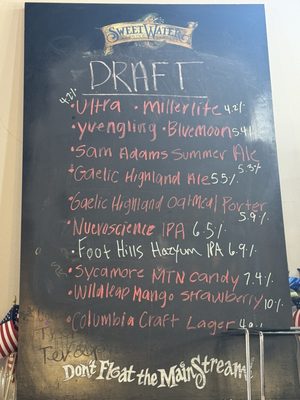 SWEETWATER
DRAFT
4.2% • Ultra • Miller lite 4.2%
• yvengling • Bluemoon 5.4%
• Sam Adams Summer Ale 5.3%
• Gaelic Highland Ale 5.5%
• Gaelic Highland Oatmeal Porter 5.9%
• Nueroscience IPA 6.5%
• Foot Hills Hazyum IPA 6.9%
• Sycamore MTN Candy 7.4%
• Wildleap Mango Strawberry 10%
• Columbia Craft Lager
Don't Float the MainStream